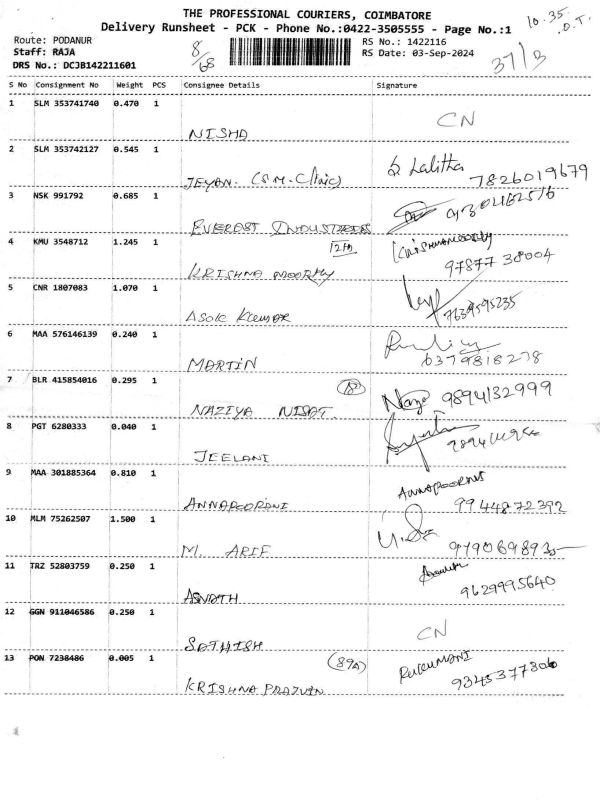 THE PROFESSIONAL COURIERS, COIMBATORE
Delivery Runsheet - PCK - Phone No.:0422-3505555 - Page No.:1
10.35.
D.T.
Route: PODANUR
Staff: RAJA
DRS No.: DCJB142211601
8/68
RS No.: 1422116
RS Date: 03-Sep-2024
37/B
S No Consignment No Weight PCS Consignee Details Signature
1 SLM 353741740 0.470 1
NISHA CN
2 SLM 353742127 0.545 1
JEYAN. (S.M-Clinic) Lalitha 7826019679
3 NSK 991792 0.685 1
EVEREST INDUSTRIES
4 KMU 3548712 1.245 1
KRISHNA MOORTHY Krishnamoorthy 97877 38004
5 CNR 1807083 1.070 1
ASOK KUMAR 7639595235
6 MAA 576146139 0.240 1
MARTIN 6379818278
7 BLR 415854016 0.295 1
NAZIYA NISAT. 9894132999
8 PGT 6280333 0.040 1
JEELANI
9 MAA 301885364 0.810 1
ANNAPOORANI ANNAPOORANI 9944872392
10 MLM 75262507 1.500 1
M. ARIF
11 TRZ 52803759 0.250 1
9629995640
12 GGN 911046586 0.250 1
SATHISH CN
13 PON 7238486 0.005 1
KRISHNA PRAJVIN (89A) RUKUMANI 9345377306